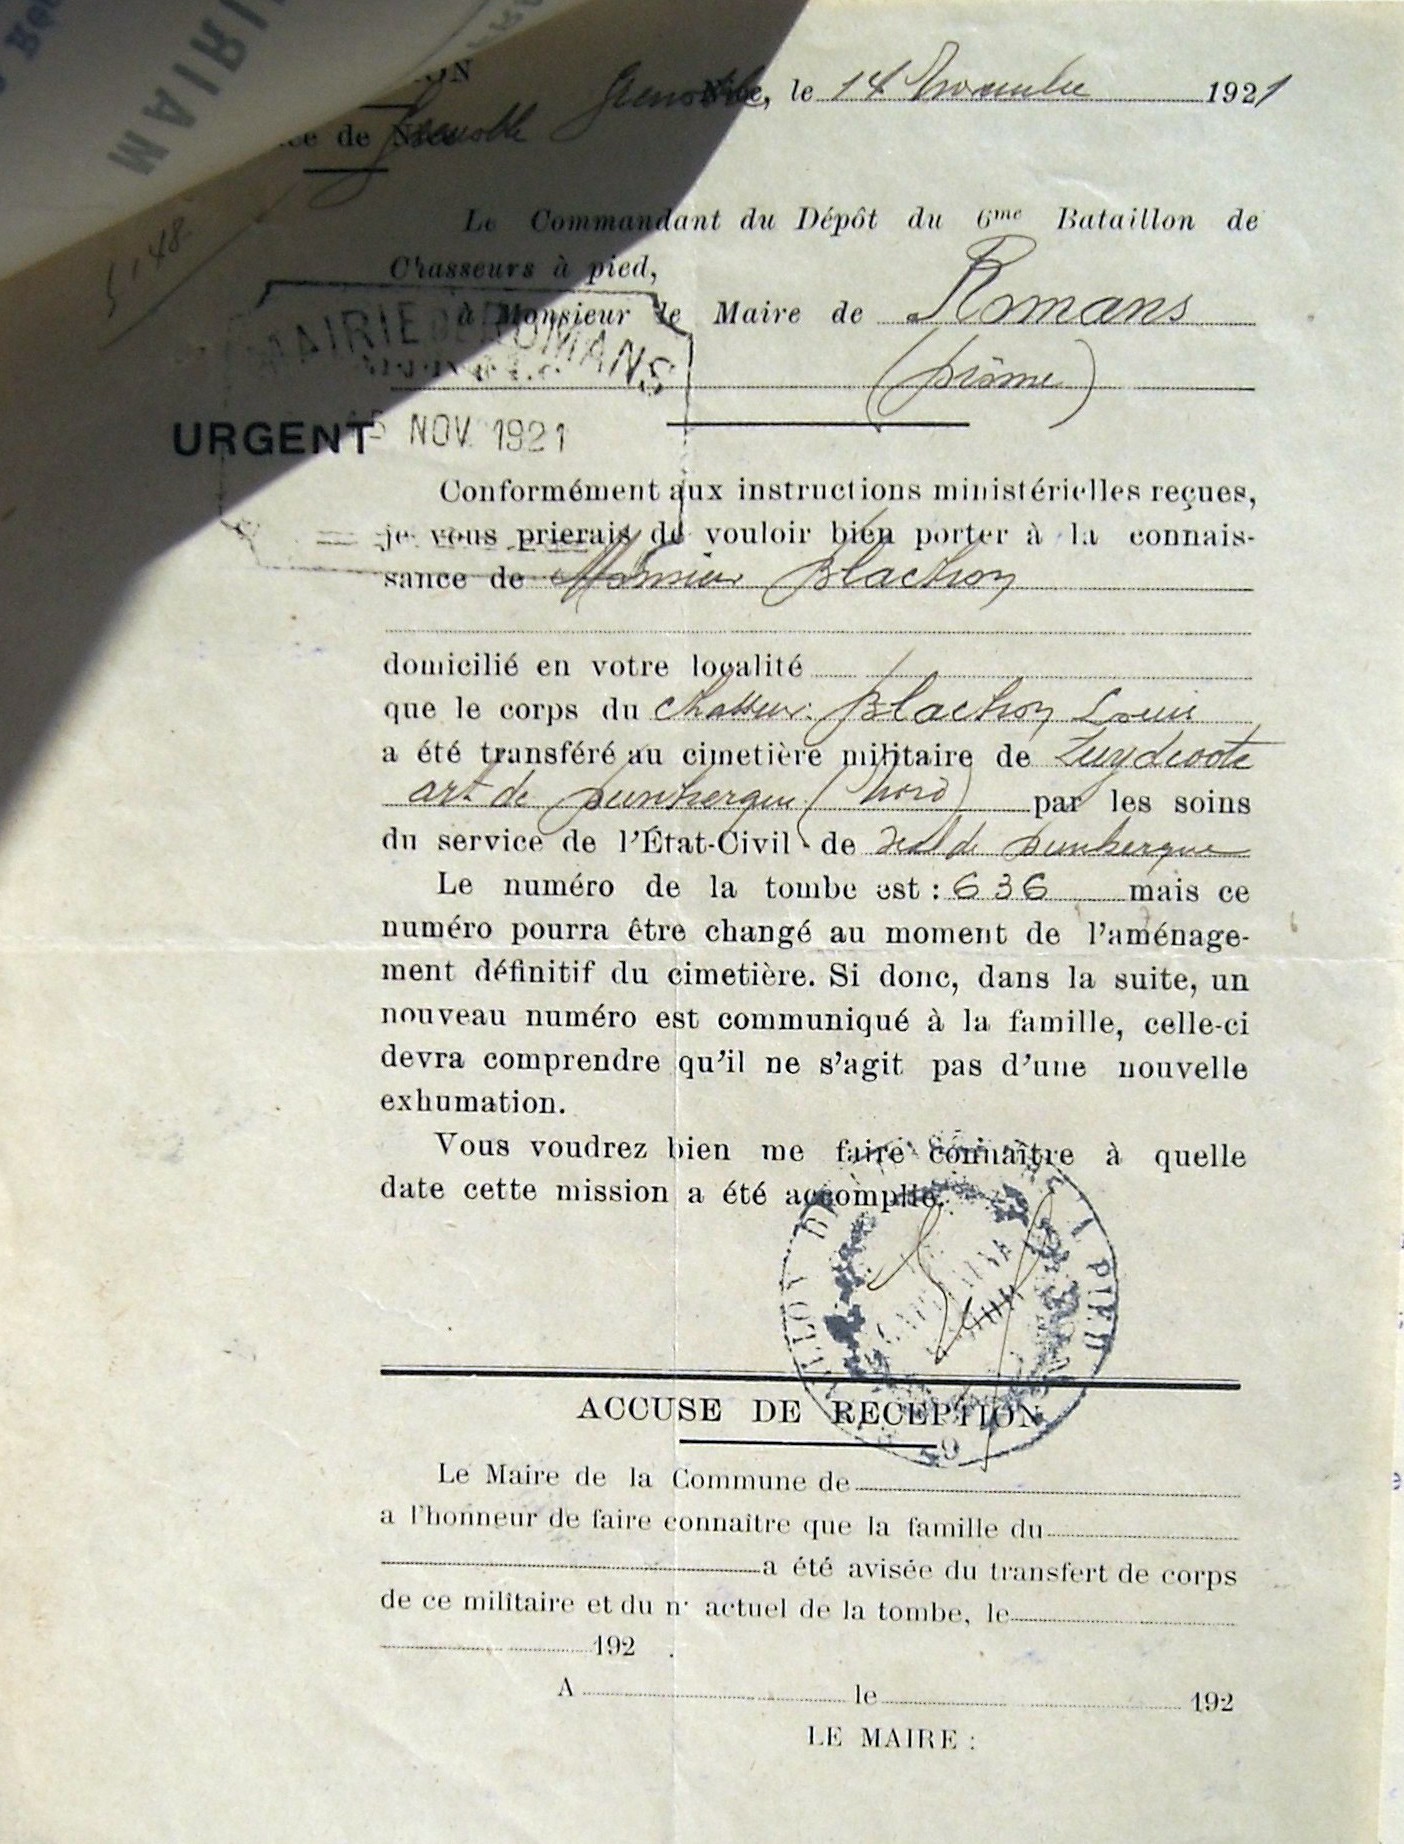 MAIRI
ION
Grenoble, le 14 Novembre 1921
ce de Grenoble
5148
Le Commandant du Dépôt du 6me Bataillon de
Chasseurs à pied,
à Monsieur le Maire de Romans
(Drôme)
MAIRIE DE ROMANS
URGENT
NOV. 1921
Conformément aux instructions ministérielles reçues,
je vous prierais de vouloir bien porter à la connais-
sance de Monsieur Blachon
domicilié en votre localité
que le corps du chasseur Blachon Louis
a été transféré au cimetière militaire de Zuydcoote
art de Dunkerque (Nord) par les soins
du service de l'État-Civil de Dunkerque
Le numéro de la tombe est : 636 mais ce
numéro pourra être changé au moment de l'aménage-
ment définitif du cimetière. Si donc, dans la suite, un
nouveau numéro est communiqué à la famille, celle-ci
devra comprendre qu'il ne s'agit pas d'une nouvelle
exhumation.
Vous voudrez bien me faire connaître à quelle
date cette mission a été accomplie.
PIED
ACCUSE DE RECEPTION
Le Maire de la Commune de
a l'honneur de faire connaître que la famille du
a été avisée du transfert de corps
de ce militaire et du n° actuel de la tombe, le
192 .
A le 192
LE MAIRE :